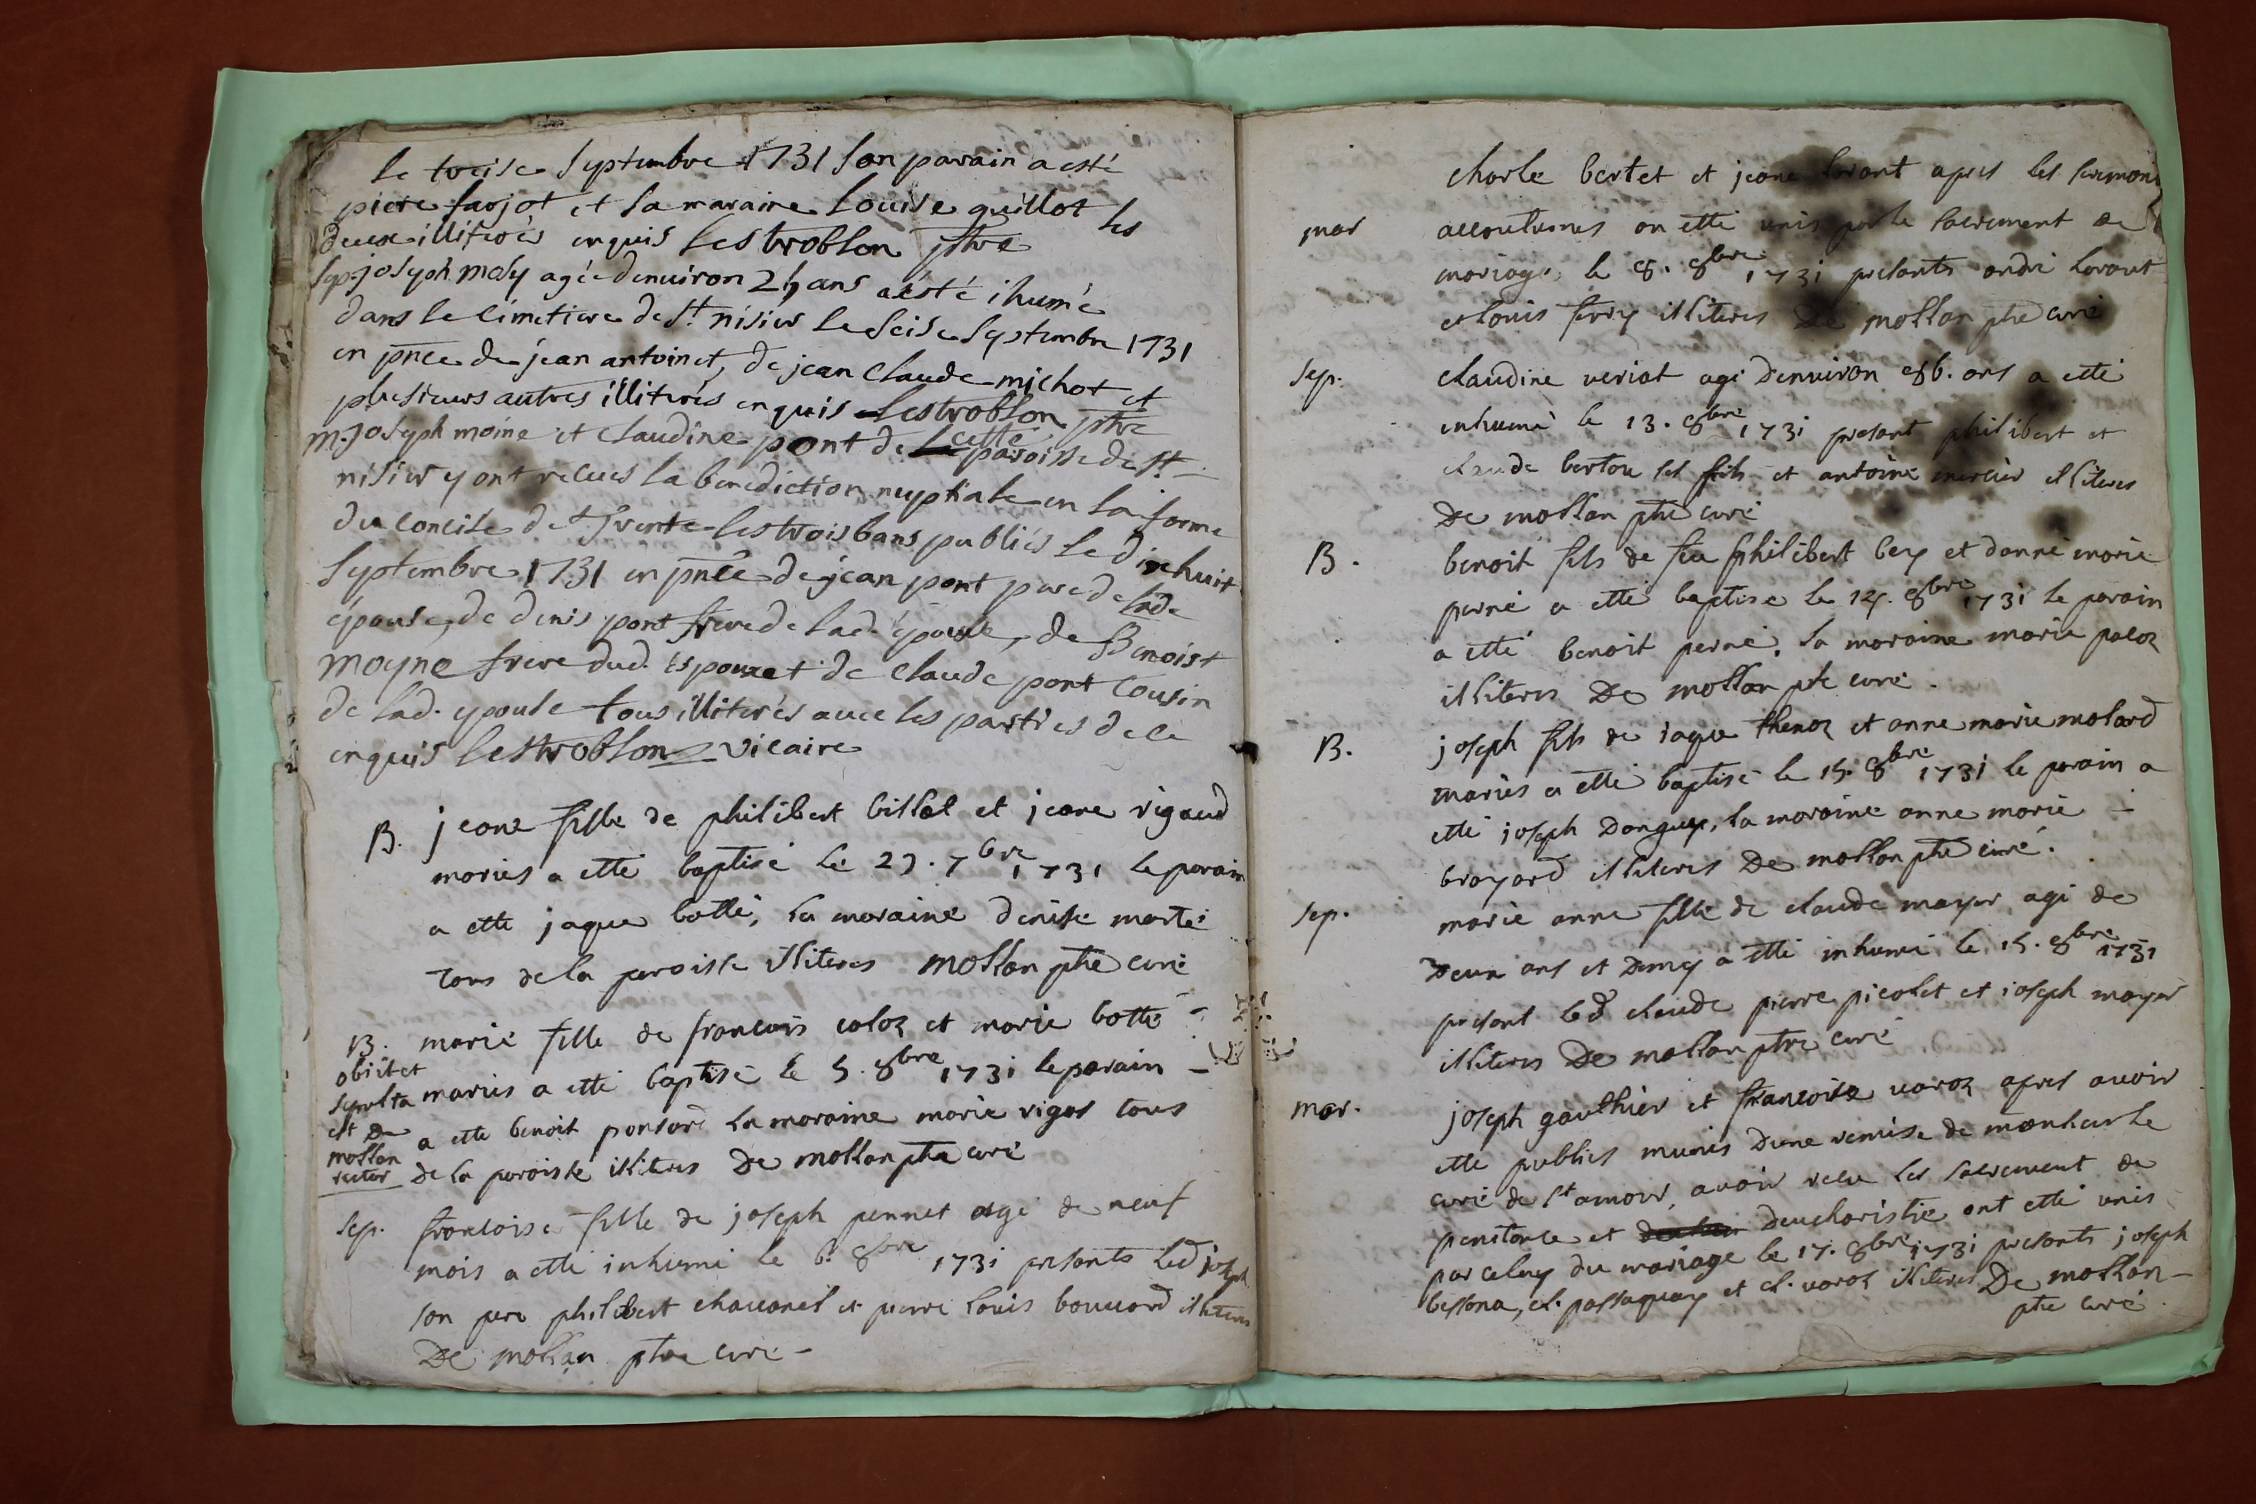 le treise Septembre 1731 son parain a esté
piere farjot et sa maraine Louise guillot les
deux illiterés enquis Lestroblon ptre
Sep. joseph maly agé denuiron 25 ans a esté ihumé
dans le cimetiere de St. nisier le seise Septembre 1731
en pnce de jean antoinet, de jean Claude michot et
plusieurs autres illiterés enquis Lestroblon ptre
M. joseph moine et Claudine pont de cette paroisse de St.
nisier y ont recues la benediction nuptiale en la forme
du concile de Trente les trois bans publiés le dixhuit
Septembre 1731 en pnce de jean pont pere de lade
épouse, de denis pont frere de lad. épouse, de Benoist
moyne frere dud. Espoux et de Claude pont Cousin
de lad. epouse tous illiterés auec les parties de ce
enquis Lestroblon vicaire
B. jeane fille de philibert billet et jeane rigaud
mariés a etté baptisé le 23. 7bre 1731 le parain
a etté jaque botté, la maraine denise marté
tous de la paroisse illiteres mollan ptre curé
B. marie fille de francois coloz et marie botté
obiit et
sepulta mariés a etté baptisé le 5. 8bre 1731 le parain
est De a etté benoit ponsard la maraine marie rigot tous
mollan
rector de la paroisse illiteres De mollan ptre curé
Sep. francoise fille de joseph pennet agé de neuf
mois a etté inhumé le 6. 8bre 1731 presants led joseph
son pere philibert chauanel et pierre louis bouuard illiteres
De mollan ptre curé
charle bertet et jeane lorant apres les seremoni
mar accoutumes on etté unis par le sacrement de
mariage, le 8. 8bre 1731 presants andré lorant
et louis ferry illiteres De mollan ptre curé
Sep. claudine veriat agé denuiron 86. ans a etté
inhumé le 13. 8bre 1731 presant philibert et
claude bertou ses fils et antoine mercier illiteres
De mollan ptre curé
B. benoit fils de feu philibert bey et danne marie
perné a etté baptisé le 14. 8bre 1731 le parain
a etté benoit perné, la maraine marie paloz
illiteres De mollan ptre curé
B. joseph fils de jaque thenoz et anne marie molard
mariés a etté baptisé le 15. 8bre 1731 le parain a
etté joseph Danguy, la maraine anne marie
broyard illiteres De mollan ptre curé.
Sep. marie anne fille de claude mayer agé de
Deux ans et Demy a etté inhumé le 15. 8bre 1731
presant led claude pierre picolet et joseph mayer
illiteres De mollan ptre curé
mar. joseph gauthier et francoise varoz apres avoir
etté publies munis Dune remise de monsieur le
curé de St amour, auoir recu les sacrement de
penitance et deucharistie ont etté unis
par celuy du mariage le 17. 8bre 1731 presants joseph
bessona, cl. passaquay et cl. varoz illiteres De mollan
ptre curé.